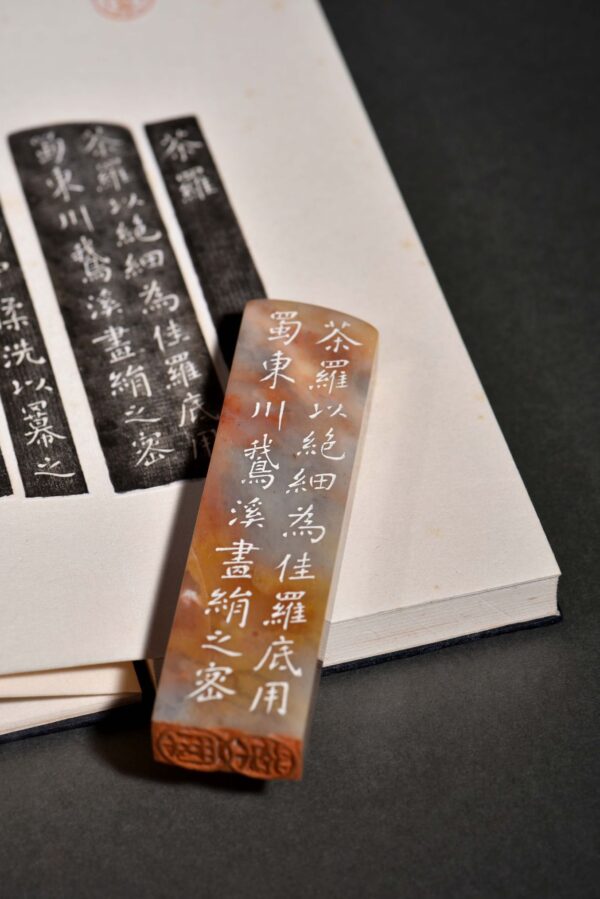 茶羅以絕細為佳羅底用
蜀東川鵝溪畫絹之密
茶羅
茶羅以絕細為佳羅底用
蜀東川鵝溪畫絹之密
柔洗以冪之